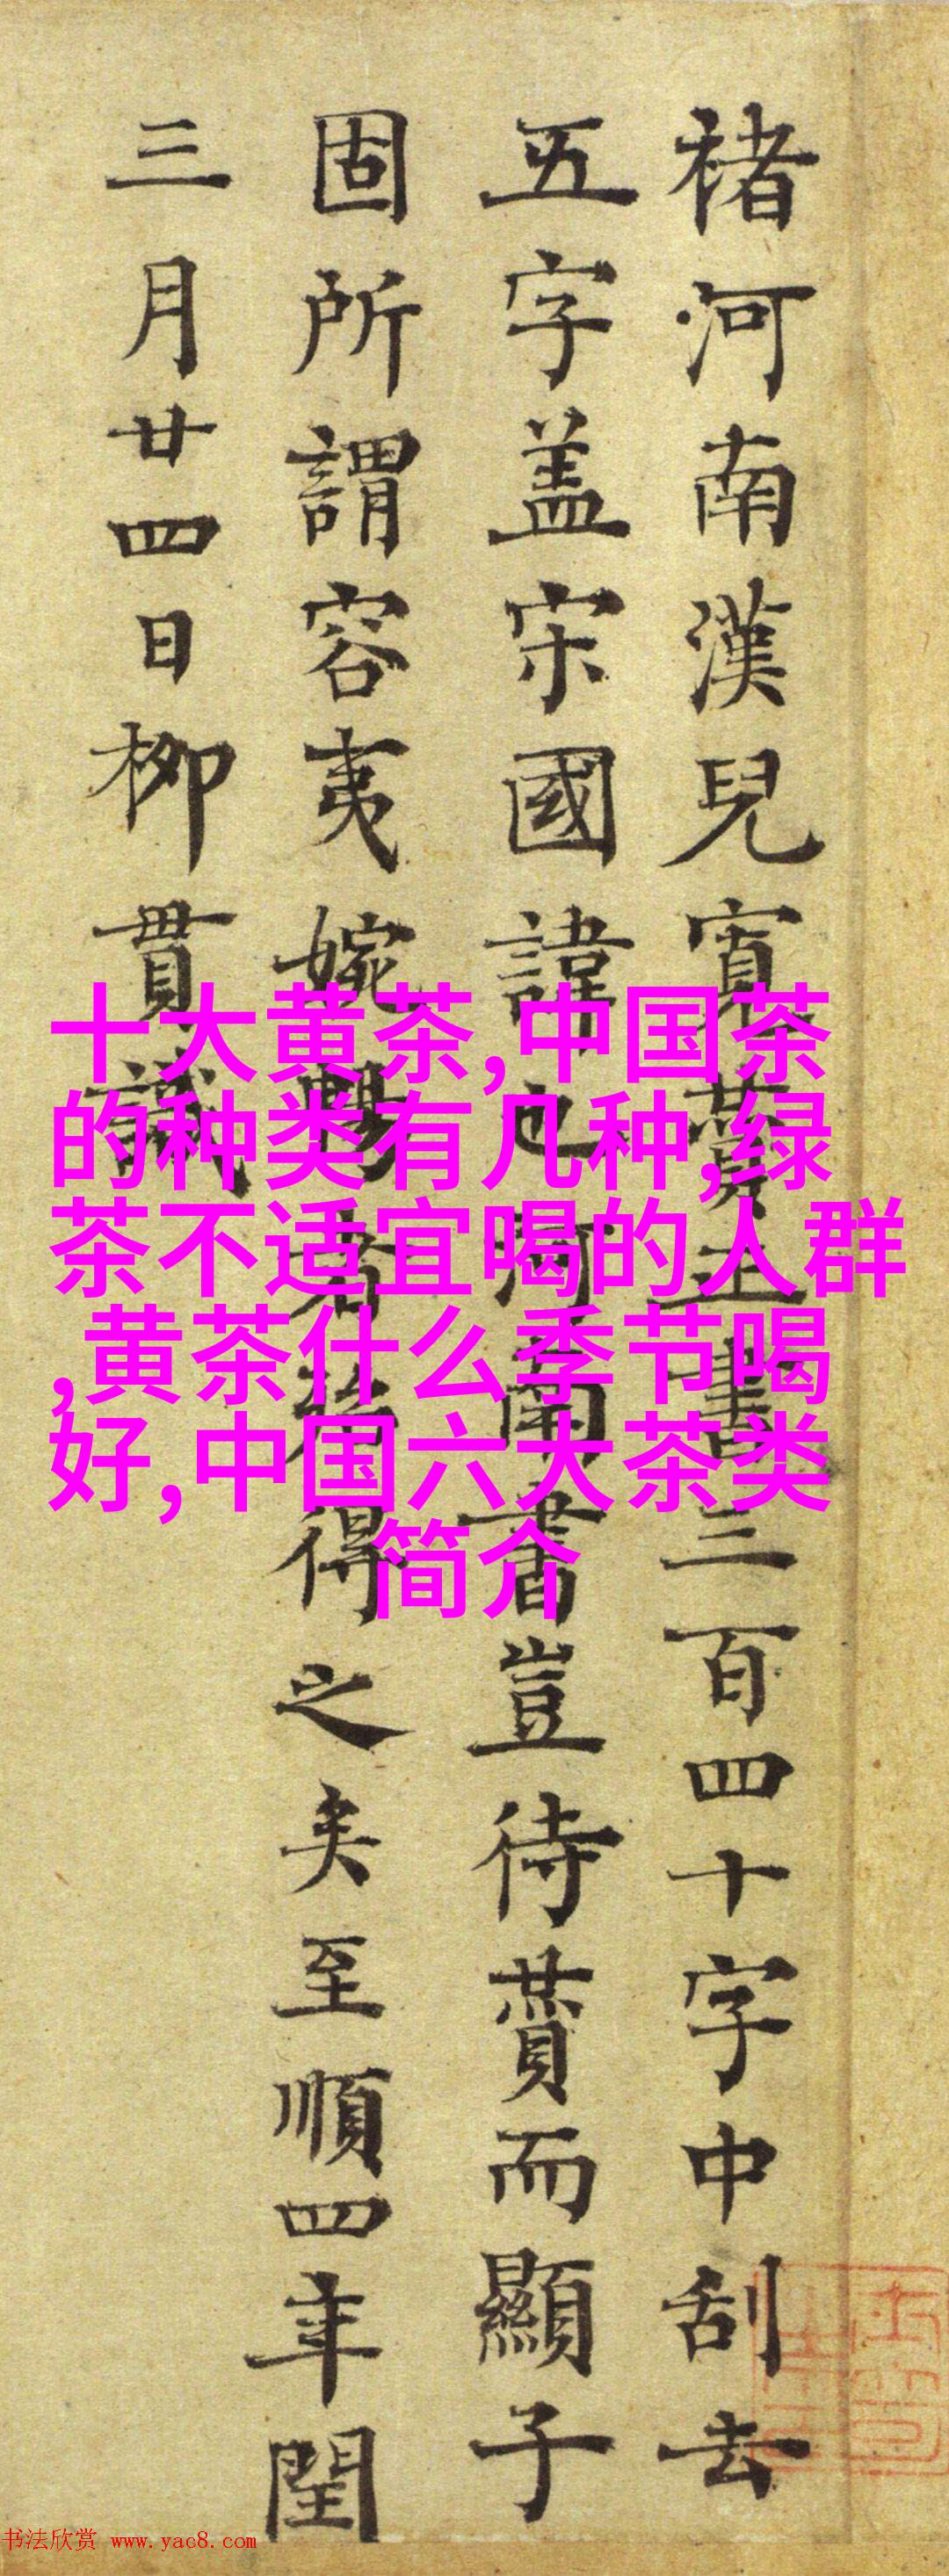 褚河南漢兒寬賛正書三百四十字中刮去
五字盖宋國諱也河南書豈待賛而顯子
固所謂容夷婉暢者盖得之矣至順四年閏
三月廿四日柳貫識
十大黄茶,中国茶
的种类有几种,绿
茶不适宜喝的人群
,黄茶什么季节喝
好,中国六大茶类
简介
书法欣赏 www.yac8.com